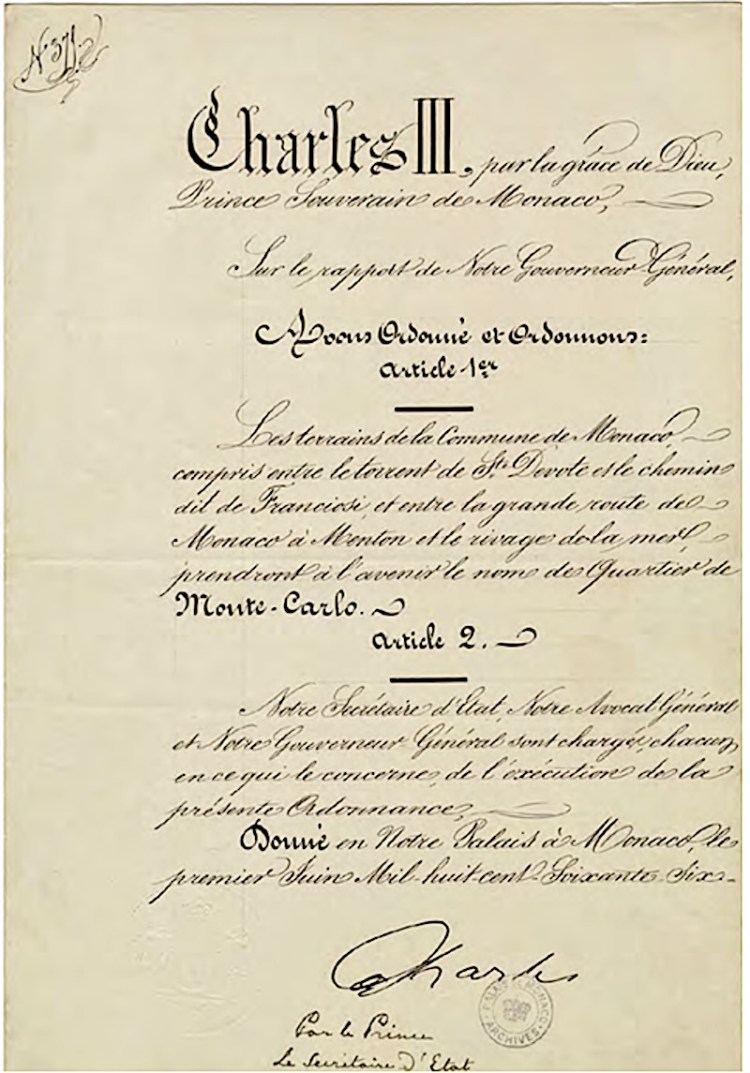 N° 371.
Charles III, par la grâce de Dieu,
Prince Souverain de Monaco,
Sur le rapport de Notre Gouverneur Général,
Avons Ordonné et Ordonnons:
Article 1er
Les terrains de la Commune de Monaco,
compris entre le torrent de Ste. Dévote et le chemin
dit de Franciosi, et entre la grande route de
Monaco à Menton et le rivage de la mer,
prendront à l'avenir le nom de Quartier de
Monte-Carlo.
Article 2.
Notre Secrétaire d'Etat, Notre Avocat Général
et Notre Gouverneur Général sont chargés, chacun
en ce qui le concerne, de l'exécution de la
présente Ordonnance,
Donné en Notre Palais à Monaco, le
premier Juin Mil-huit-cent-Soixante-Six.
Charles
PALAIS DE MONACO
ARCHIVES
Par le Prince
Le Secrétaire d'Etat